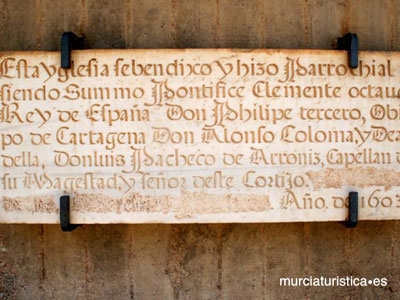 Esta yglesia se bendixo y hizo Parrochial
siendo Summo Pontifice Clemente octau
Rey de España Don Philipe tercero, Obi
po de Cartagena Don Alonso Coloma, y Dea
della, Don luis Pacheco de Arroniz, Capellan d
su Magestad, y señor deste Cortijo.
Año, de 1603
murciaturistica•es